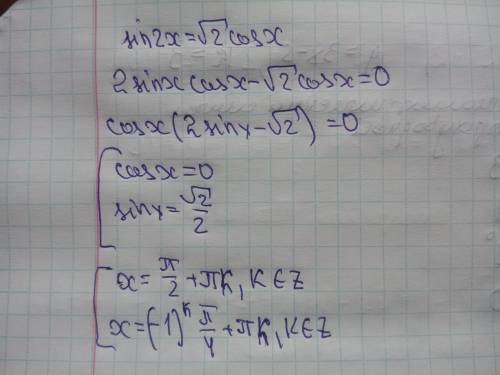 sin2x=√2cosx
2sinx cosx-√2cosx=0
cosx(2sinx-√2)=0
cosx=0
sinx=√2/2
x=π/2+πk, k∈Z
x=(-1)^k π/4+πk, k∈Z